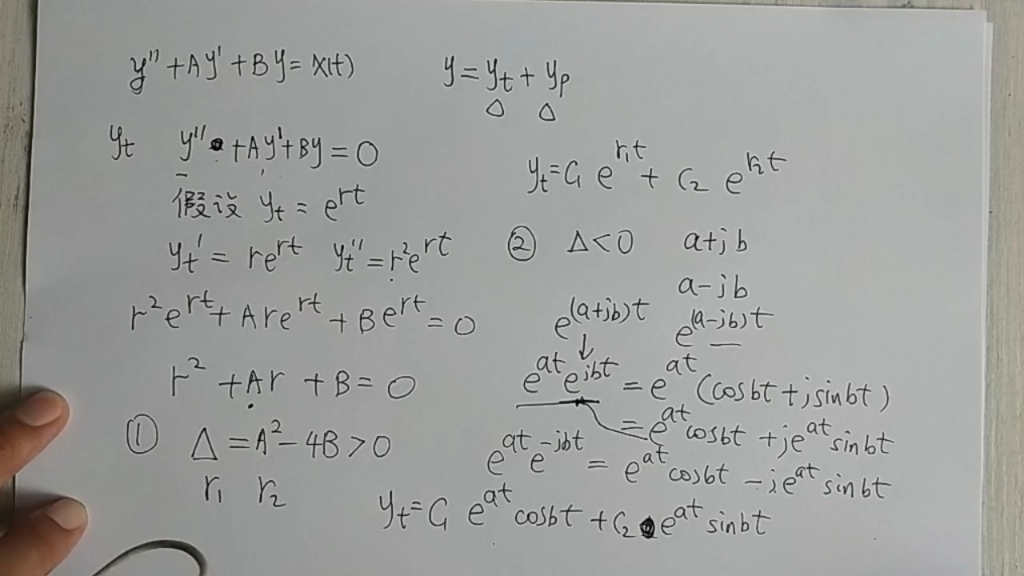 y'' + Ay' + By = x(t)
y = y_t + y_p
△ △
y_t y'' + Ay' + By = 0
假设 y_t = e^{rt}
y_t' = re^{rt} y_t'' = r²e^{rt}
r²e^{rt} + Are^{rt} + Be^{rt} = 0
r² + Ar + B = 0
① Δ = A² - 4B > 0
r₁ r₂
y_t = C₁ e^{r₁t} + C₂ e^{r₂t}
② Δ < 0 a+jb
a-jb
e^{(a+jb)t} e^{(a-jb)t}
↓
e^{at} e^{jbt} = e^{at} (cosbt + jsinbt)
= e^{at} cosbt + je^{at} sinbt
e^{at} e^{-jbt} = e^{at} cosbt - je^{at} sinbt
y_t = C₁ e^{at} cosbt + C₂ e^{at} sinbt